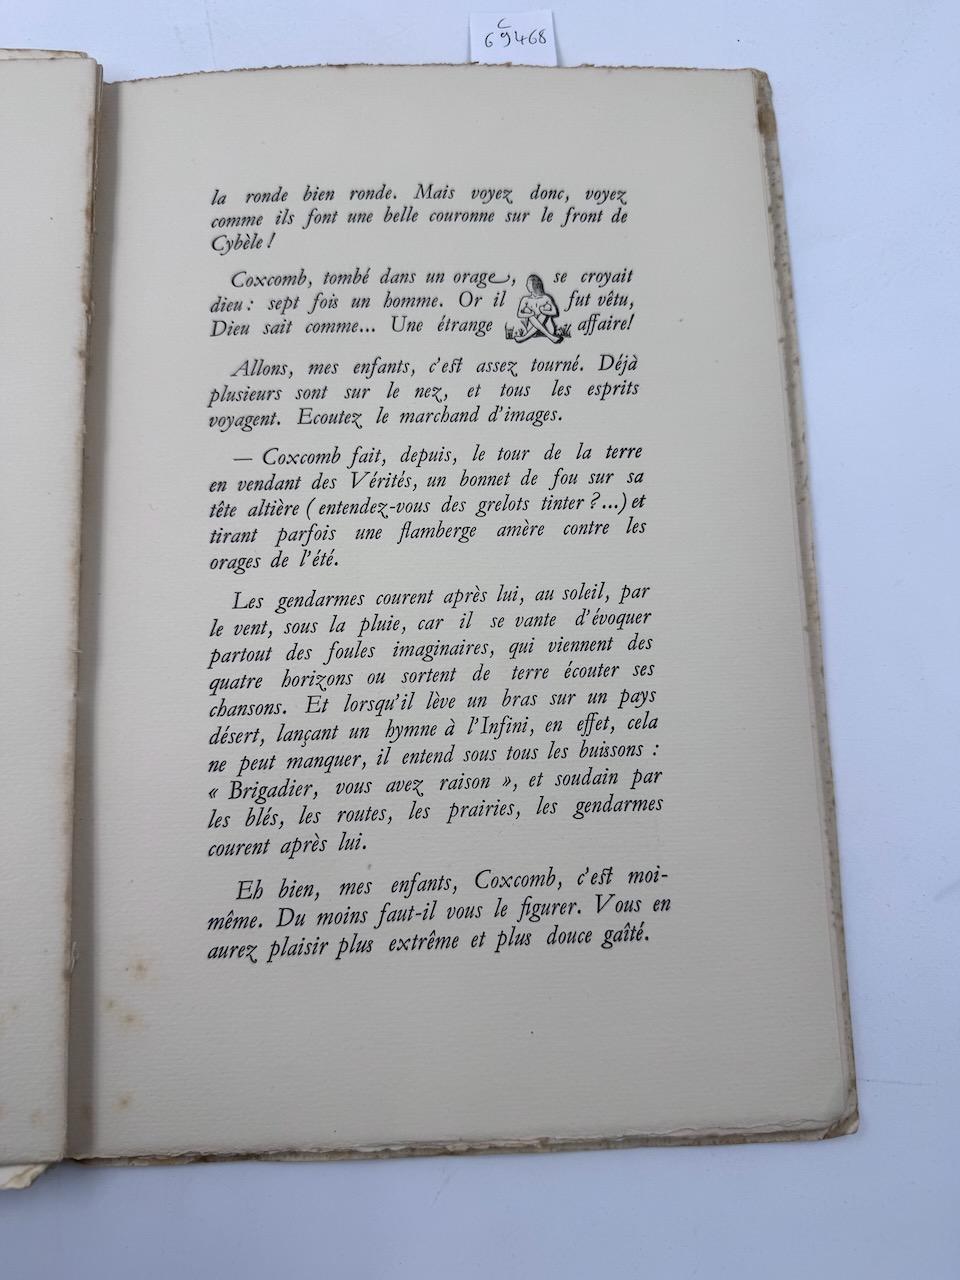 C
69468
la ronde bien ronde. Mais voyez donc, voyez
comme ils font une belle couronne sur le front de
Cybèle !
Coxcomb, tombé dans un orage, se croyait
dieu : sept fois un homme. Or il fut vêtu,
Dieu sait comme... Une étrange affaire!
Allons, mes enfants, c'est assez tourné. Déjà
plusieurs sont sur le nez, et tous les esprits
voyagent. Ecoutez le marchand d'images.
— Coxcomb fait, depuis, le tour de la terre
en vendant des Vérités, un bonnet de fou sur sa
tête altière ( entendez-vous des grelots tinter ?...) et
tirant parfois une flamberge amère contre les
orages de l'été.
Les gendarmes courent après lui, au soleil, par
le vent, sous la pluie, car il se vante d'évoquer
partout des foules imaginaires, qui viennent des
quatre horizons ou sortent de terre écouter ses
chansons. Et lorsqu'il lève un bras sur un pays
désert, lançant un hymne à l'Infini, en effet, cela
ne peut manquer, il entend sous tous les buissons :
« Brigadier, vous avez raison », et soudain par
les blés, les routes, les prairies, les gendarmes
courent après lui.
Eh bien, mes enfants, Coxcomb, c'est moi-
même. Du moins faut-il vous le figurer. Vous en
aurez plaisir plus extrême et plus douce gaîté.